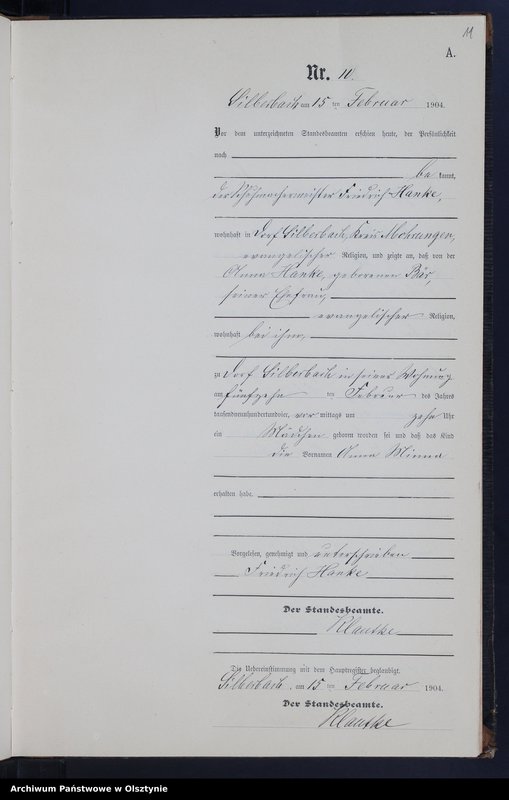 11
A.
Nr. 10.
Silberbach am 15 ten Februar 1904.
Vor dem unterzeichneten Standesbeamten erschien heute, der Persönlichkeit
nach
be kannt,
der Schuhmachermeister Friedrich Hanke,
wohnhaft in Dorf Silberbach, Kreis Mohrungen,
evangelischer Religion, und zeigte an, daß von der
Anna Hanke, geborenen Bär,
seiner Ehefrau,
evangelischer Religion,
wohnhaft bei ihm,
zu Dorf Silberbach in seiner Wohnung
am fünfzehn ten Februar des Jahres
tausendneunhundertundvier, vor mittags um zehn Uhr
ein Mädchen geboren worden sei und daß das Kind
die Vornamen Anna Minna
erhalten habe.
Vorgelesen, genehmigt und unterschrieben
Friedrich Hanke
Der Standesbeamte.
Klautke
Die Uebereinstimmung mit dem Hauptregister beglaubigt.
Silberbach, am 15 ten Februar 1904.
Der Standesbeamte.
Klautke
Archiwum Państwowe w Olsztynie